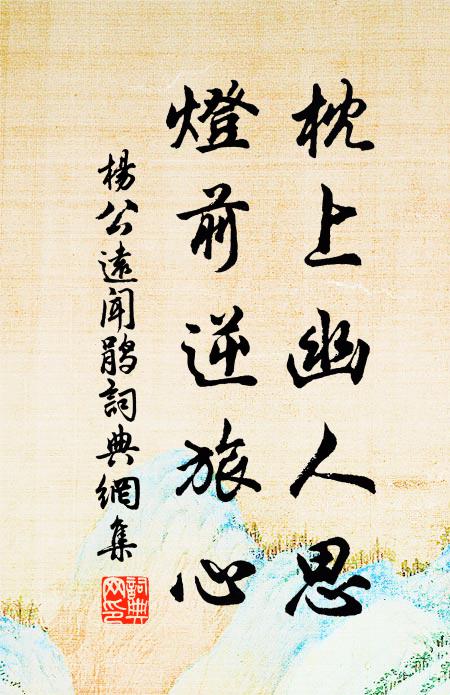 枕上幽人思
燈前逆旅心
楊公遠聞鵑詞典網集
詞典網印